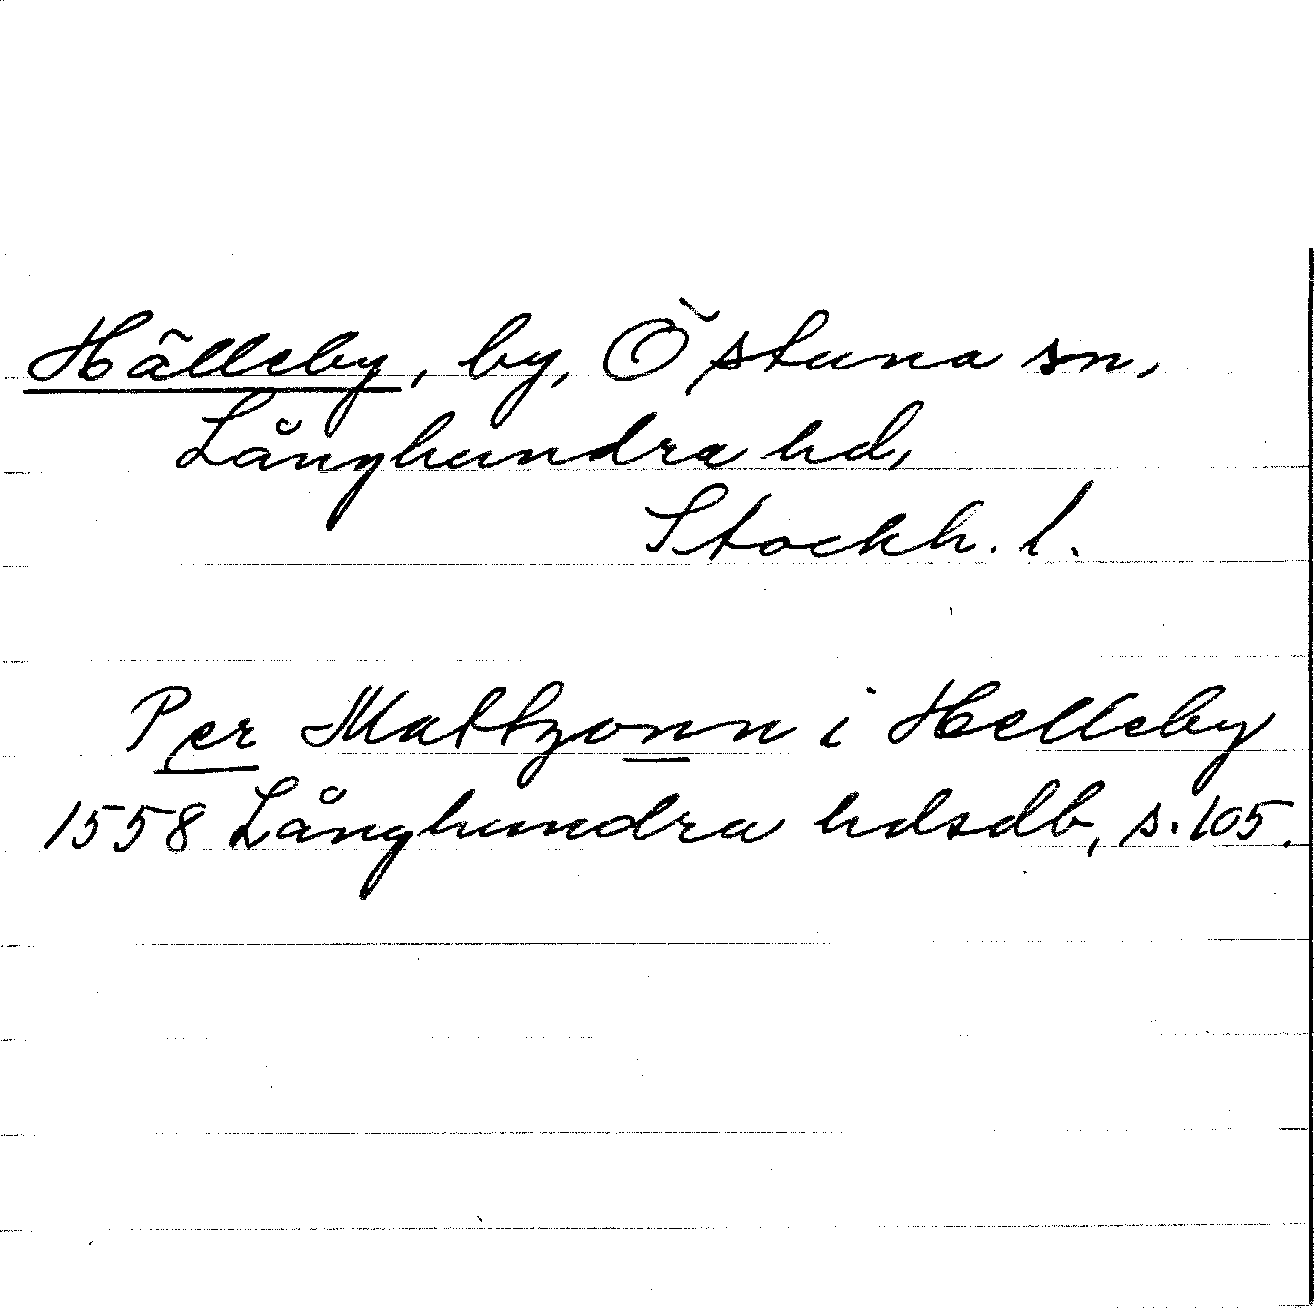 Hälleby, by, Östuna sn,
Långhundra hd,
Stockh. l.
Per Mattzonn i Helleby
1558 Långhundra hdsdb, s. 105.